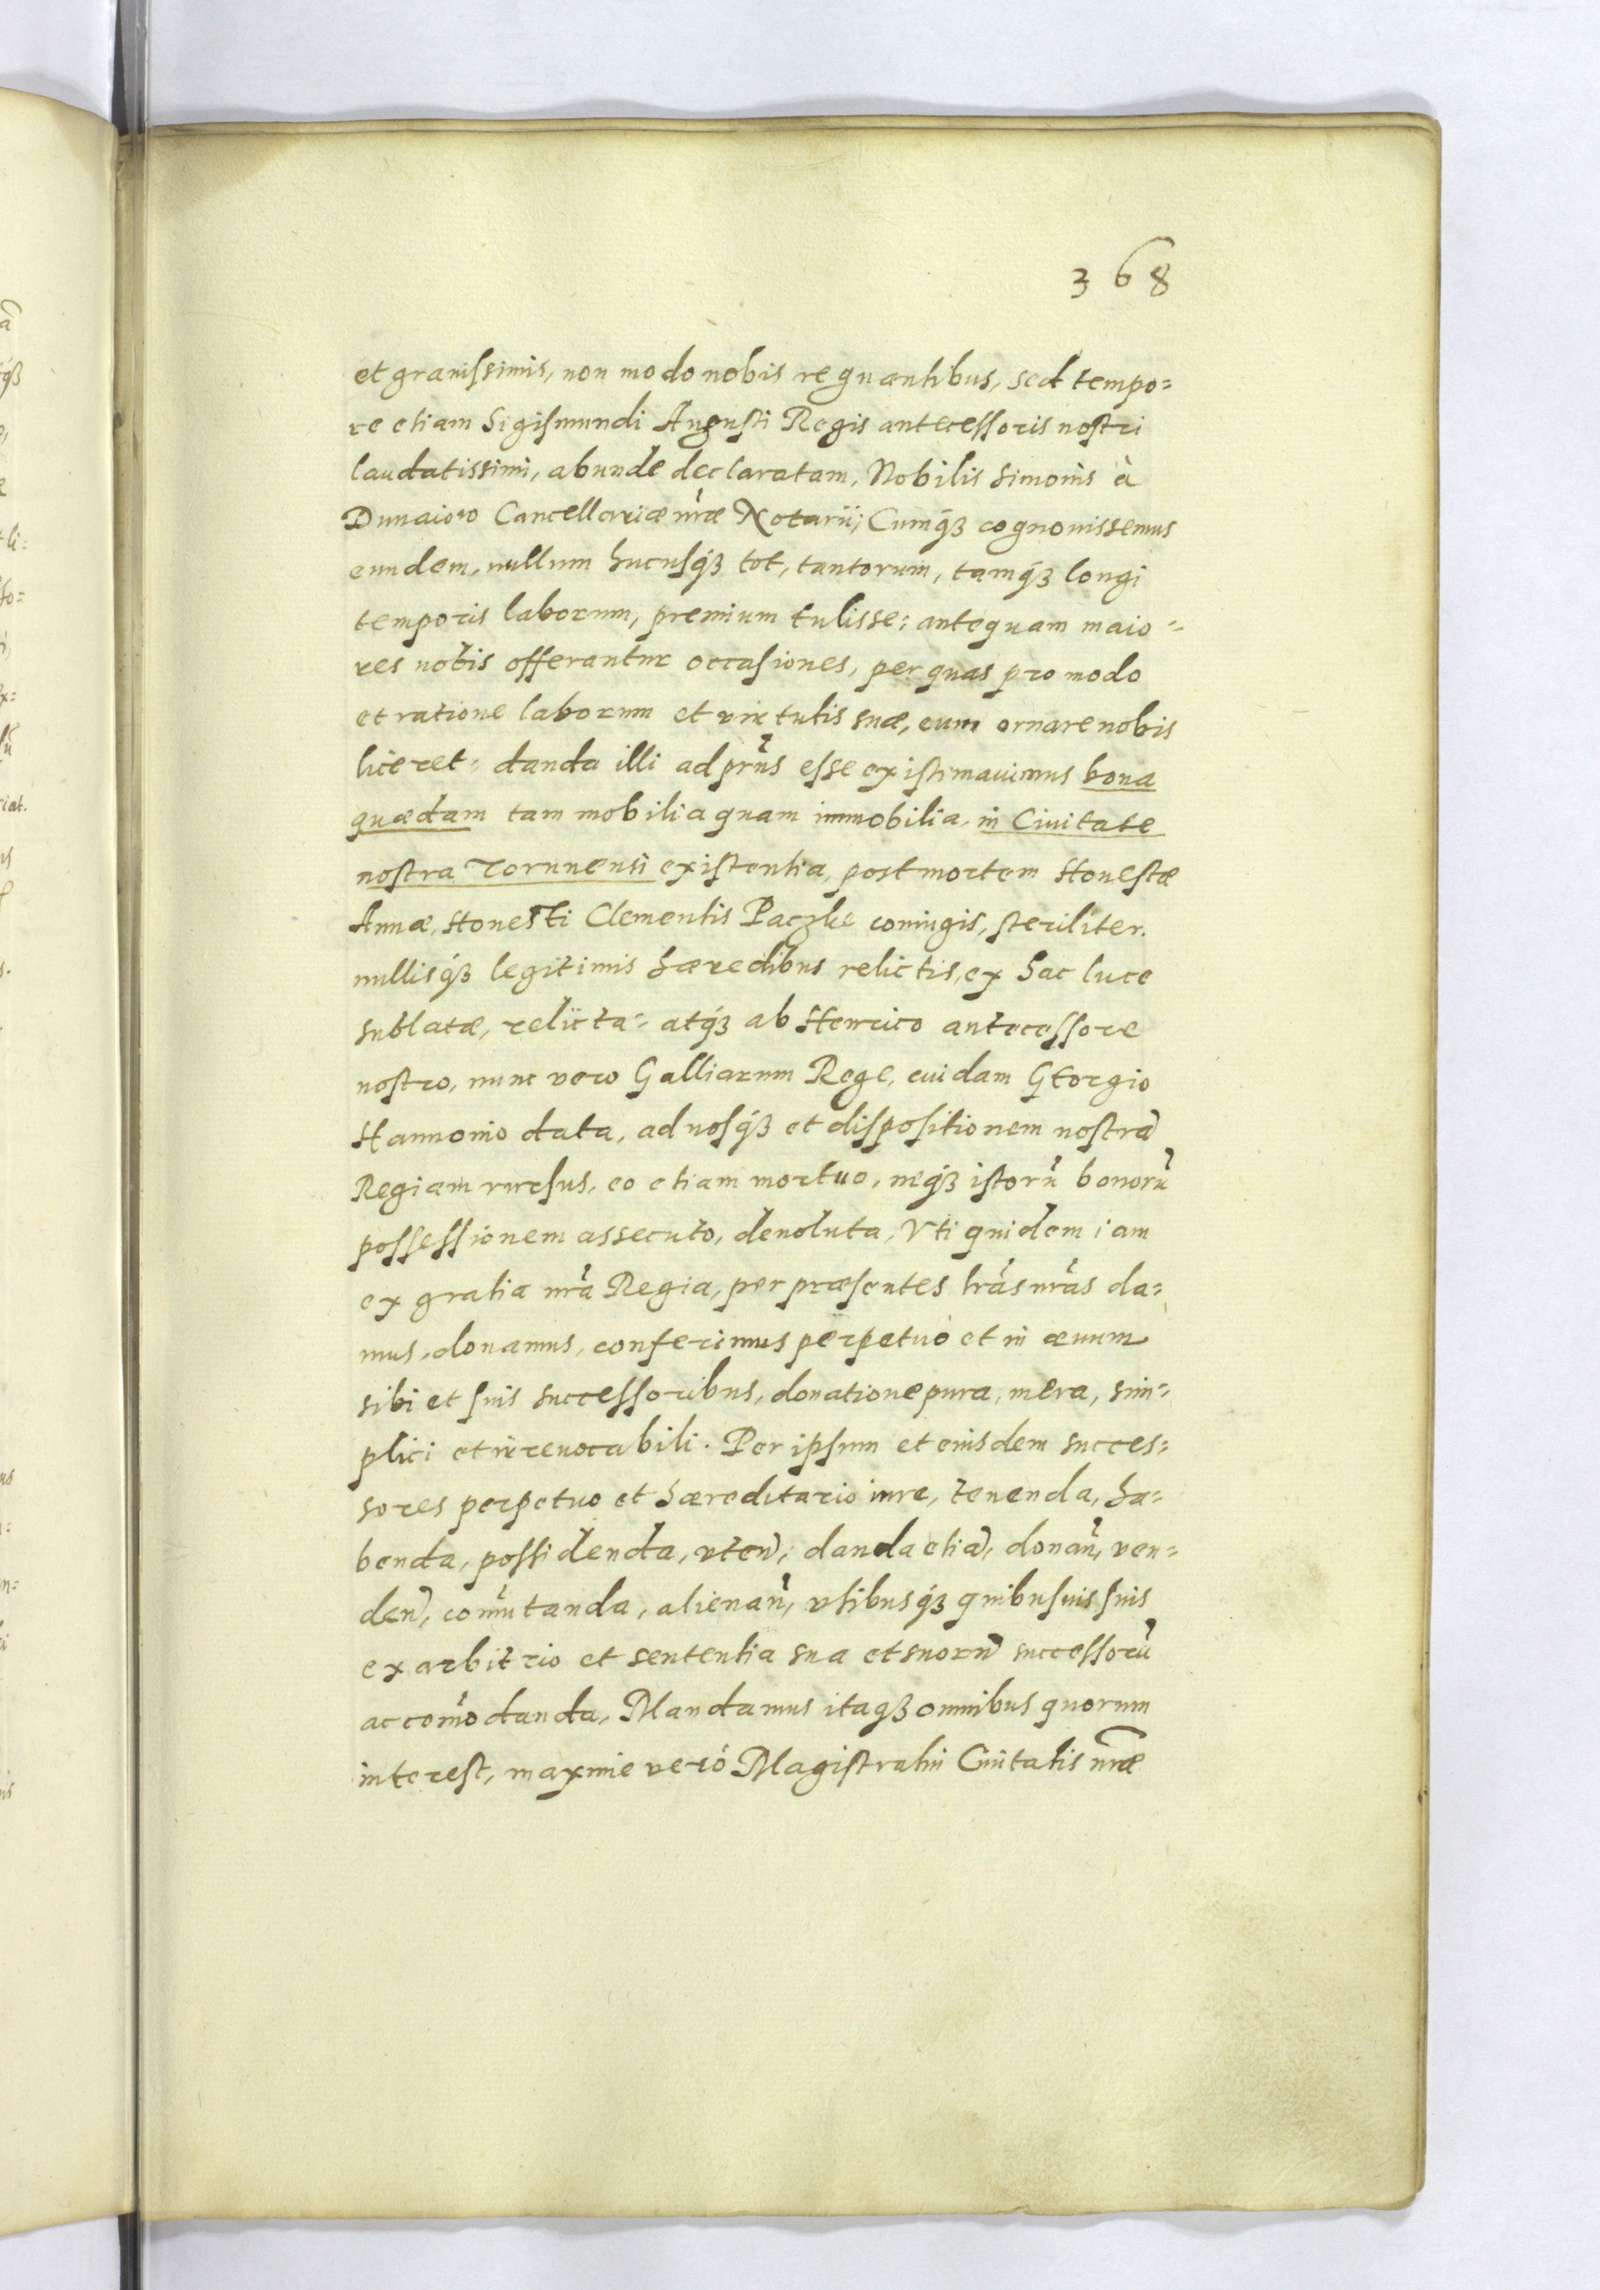 368
et grauissimis, non modo nobis regnantibus, sed tempo=
re etiam Sigismundi Augusti Regis antecessoris nostri
laudatissimi, abunde declaratam, Nobilis Simonis à
Dunaiow Cancellariæ nr̃æ Notarij; Cumq́ꝫ cognouissemus
eundem, nullum hucusq́ꝫ tot, tantorum, tamq́ꝫ longi
temporis laborum, premium tulisse: antequam maio=
res nobis offerantur occasiones, per quas pro modo
et ratione laborum et virtutis suæ, eum ornare nobis
liceret: danda illi ad prñs esse existimauimus bona
quædam tam mobilia quam immobilia, in Ciuitate
nostra Torunensi existentia, post mortem Honestæ
Annæ, Honesti Clementis Paczke coniugis, steriliter.
nullisq́ꝫ legitimis hæredibus relictis, ex hac luce
sublatæ, relicta: atq́ꝫ ab Henrico antecessore
nostro, nunc vero Galliarum Rege, cuidam Georgio
Hannonio data, ad nosq́ꝫ et dispositionem nostrã
Regiam rursus, eo etiam mortuo, neq́ꝫ istorũ bonorũ
possessionem assecuto, deuoluta, Vti quidem iam
ex gratia nr̃a Regia, per præsentes lr̃as nr̃as da=
mus, donamus, conferimus perpetuo et in æuum
sibi et suis successoribus, donatione pura, mera, sim=
plici et irreuocabili. Per ipsum et eiusdem succes=
sores perpetuo et hæreditario iure, tenenda, ha=
benda, possidenda, vteñ, danda etiã, donañ, ven=
deñ, com̃utanda, alienañ, vsibusq́ꝫ quibusuis suis
ex arbitrio et sententia sua et suorũ successorũ
accom̃odanda, Mandamus itaqꝫ omnibus quorum
interest, maxime verò Magistratui Ciuitatis nr̃æ